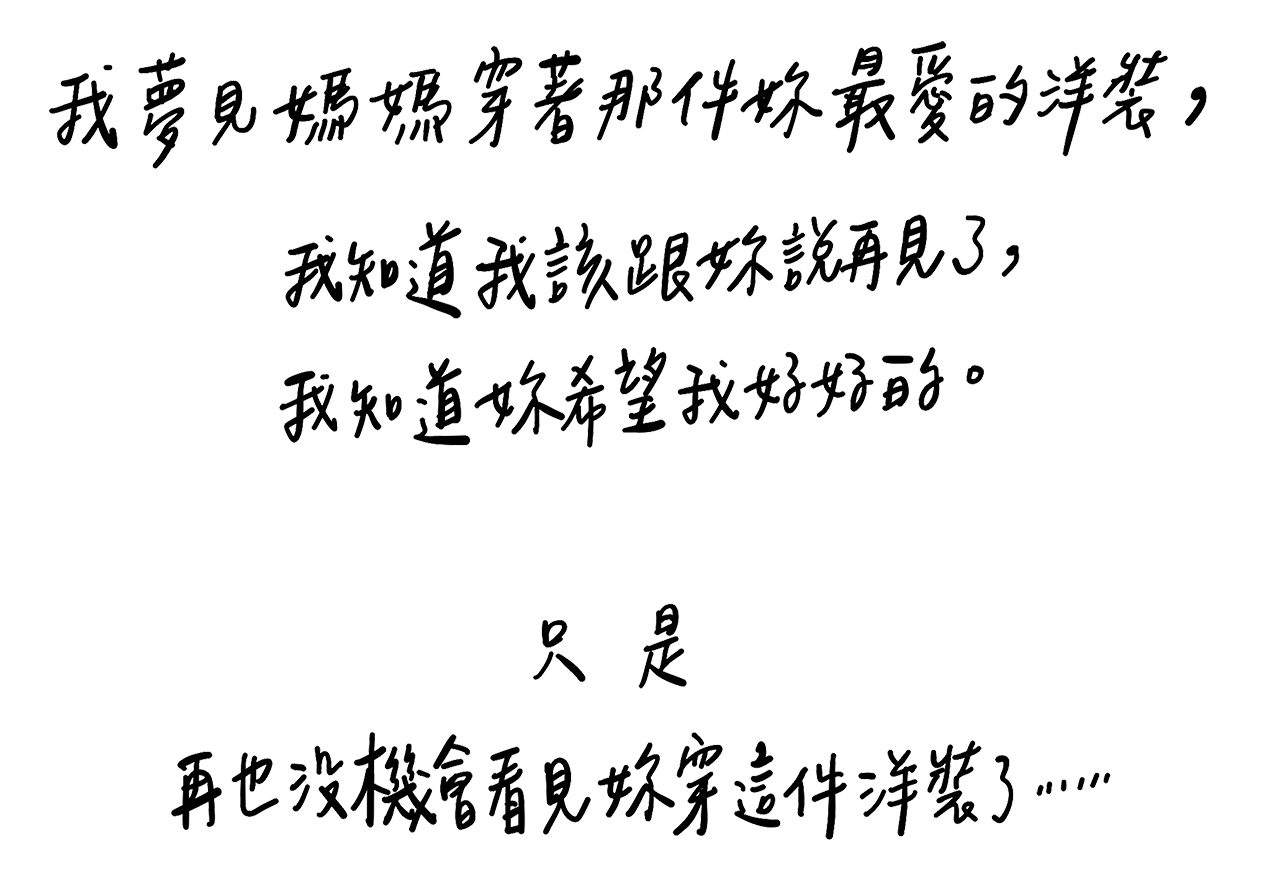 我夢見媽媽穿著那件妳最愛的洋裝，
我知道我該跟妳說再見了，
我知道妳希望我好好的。
只是
再也沒機會看見妳穿這件洋裝了……